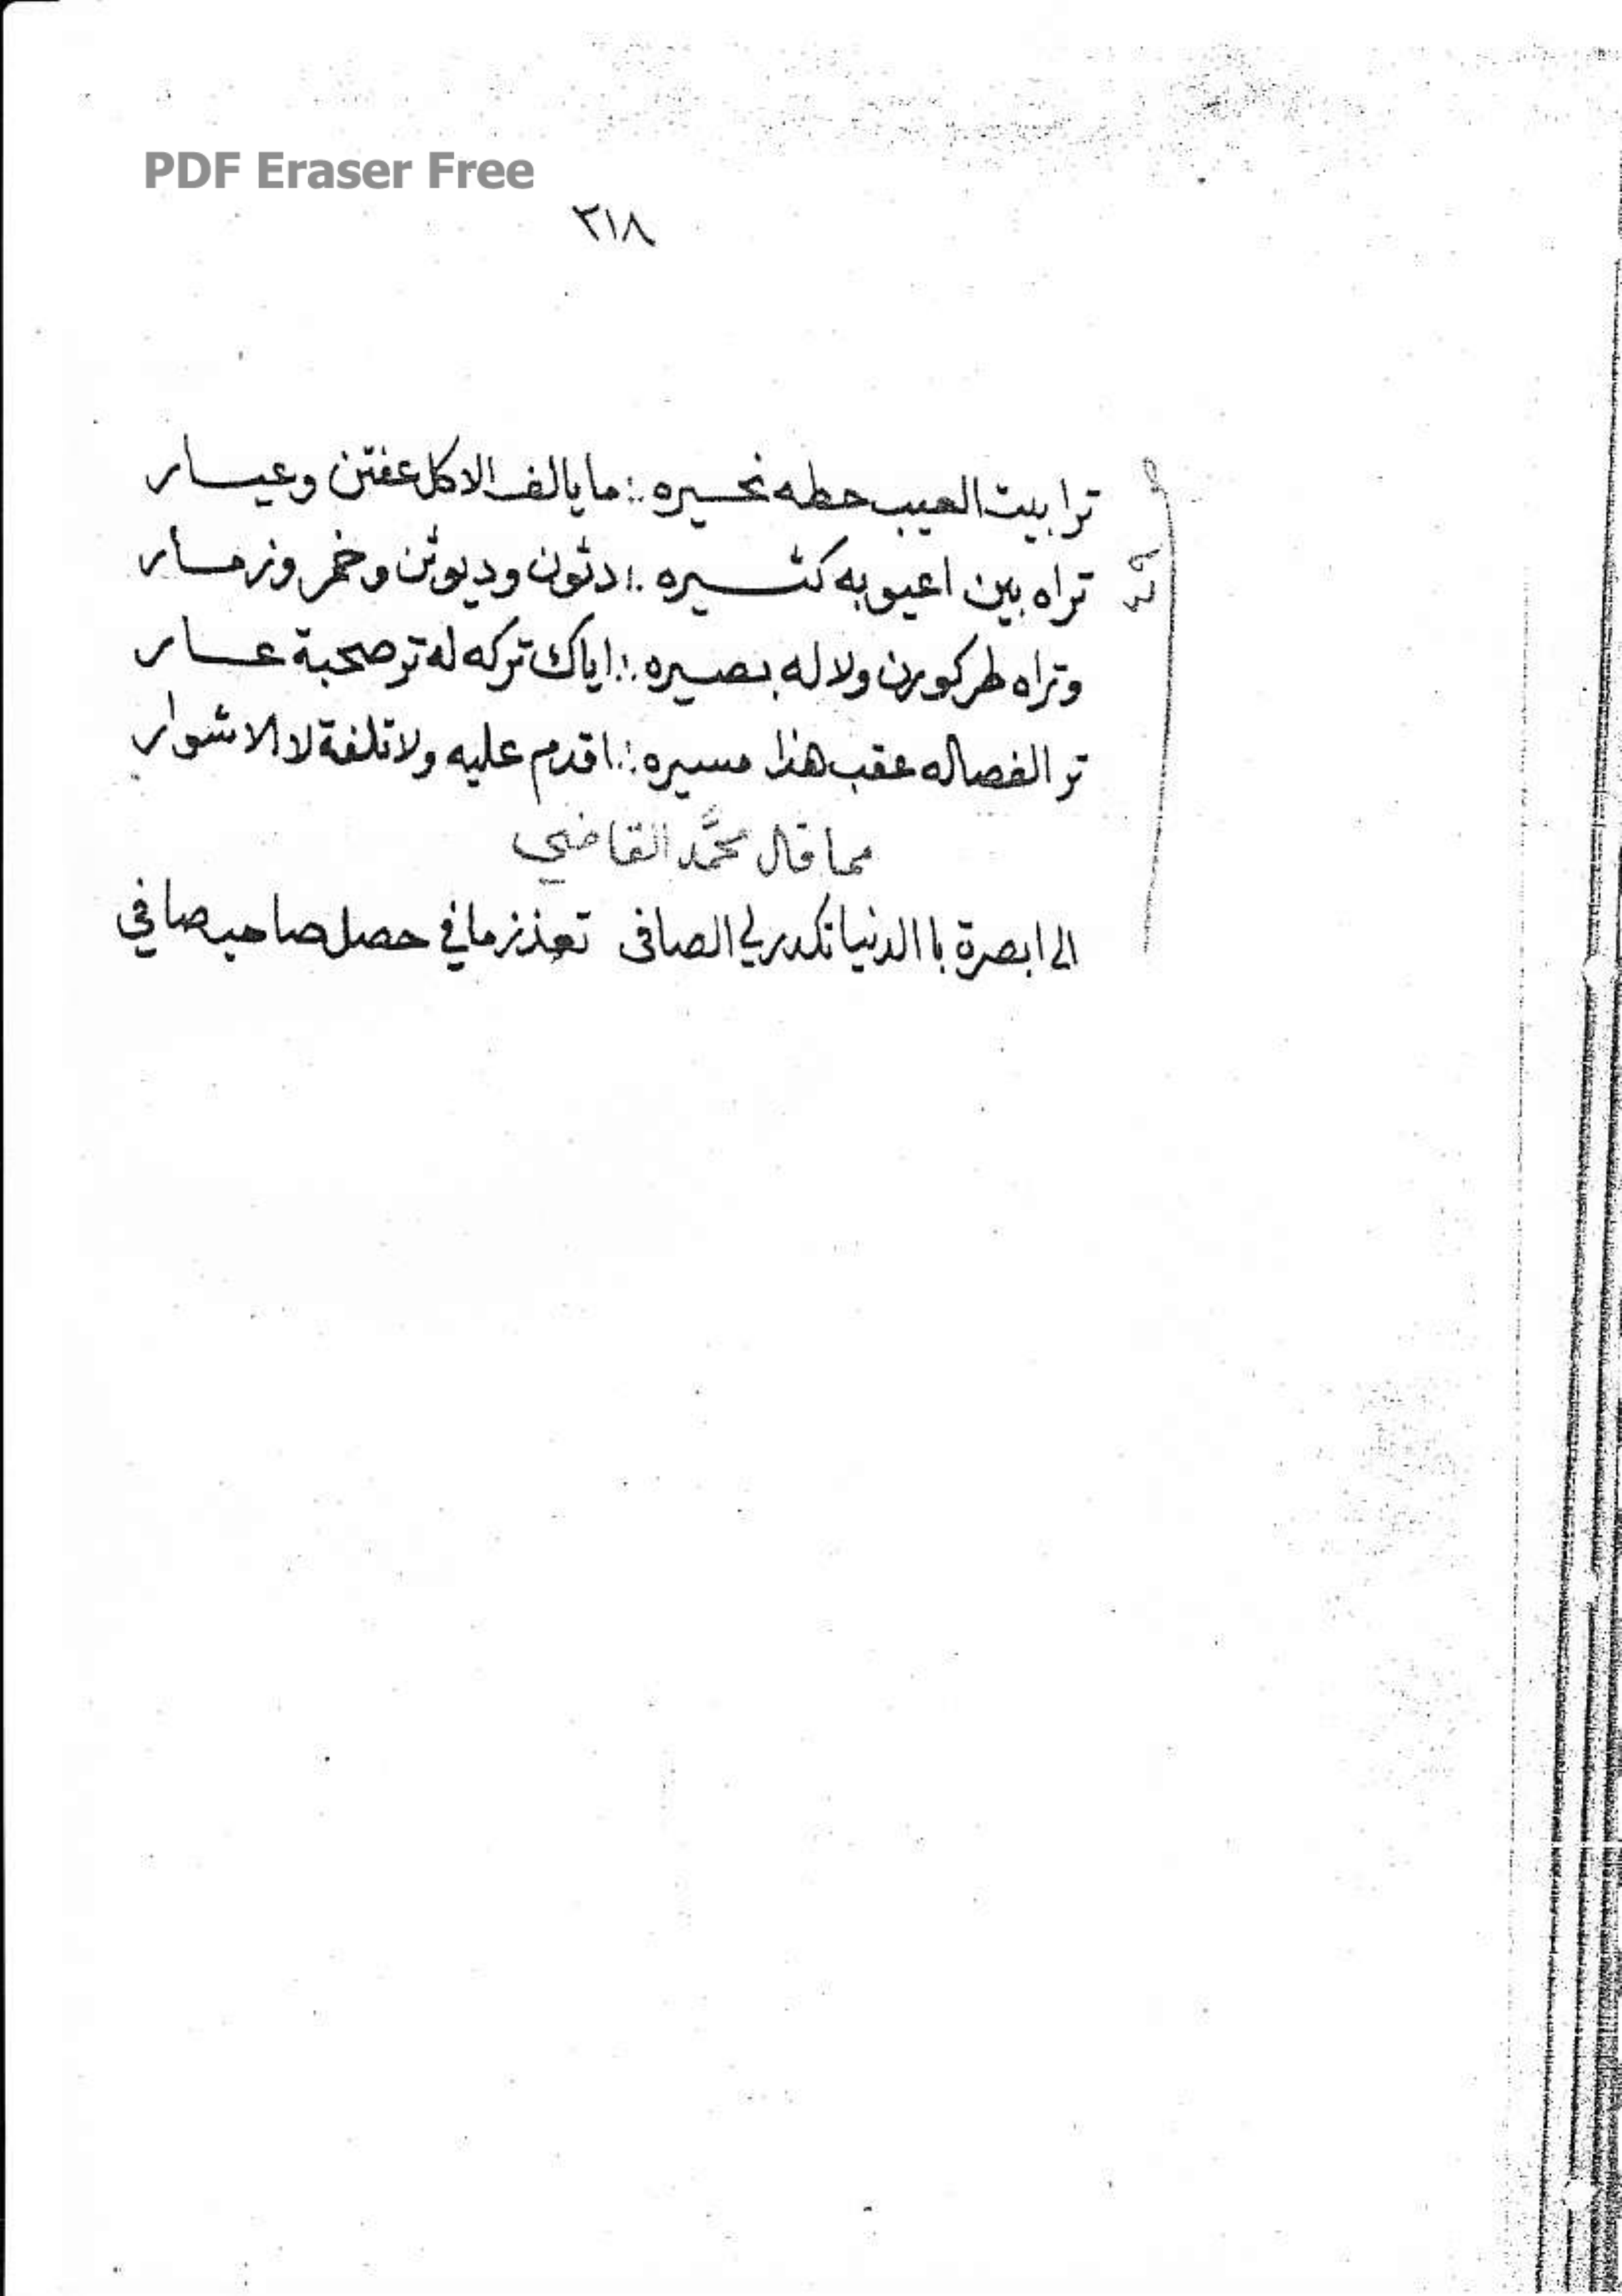 PDF Eraser Free
٣١٨
ترا بيت العيب حطه نحسيره ؛ ما يالف الا كل عفتن وعيسار
تراه بين اعيوبه كثسيره ؛ دثون وديوثن وخمر وزمسار
وتراه طركورن ولا له بصسيره ؛ اياك تركه له تر صحبة عسار
تر الفصاله عقب هذا مسيره ؛ اقدم عليه ولا تلفة لا الاشوار
مما قال محمَّد القاضي
الى ابصرة با الدنيا تكدر لي الصافى تعذز ما في حصل صاحب صافي